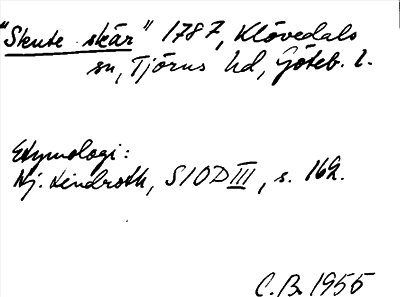 "Skute skär" 1787, Klövedals
sn, Tjörns hd, Göteb. l.
Etymologi:
Hj. Lindroth, SIOD III, s. 162.
C.B. 1955